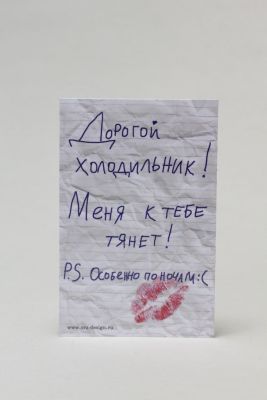 Дорогой
холодильник!
Меня к тебе
тянет!
P.S. Особенно по ночам :(
www.ara-design.ru